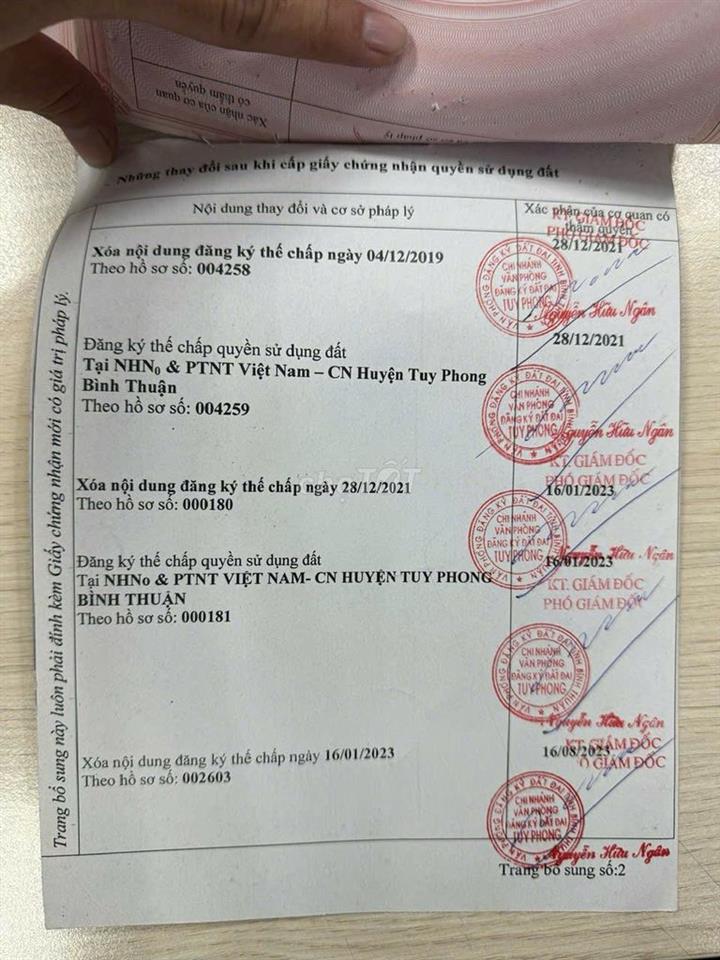 Xác nhận của cơ quan
có thẩm quyền
Những thay đổi sau khi cấp giấy chứng nhận quyền sử dụng đất
Nội dung thay đổi và cơ sở pháp lý
Xác nhận của cơ quan có
thẩm quyền
KT. GIÁM ĐỐC
PHÓ GIÁM ĐỐC
Xóa nội dung đăng ký thế chấp ngày 04/12/2019
Theo hồ sơ số: 004258
28/12/2021
VĂN PHÒNG ĐĂNG KÝ ĐẤT ĐAI TỈNH BÌNH THUẬN
CHI NHÁNH
VĂN PHÒNG
ĐĂNG KÝ ĐẤT ĐAI
TUY PHONG
Nguyễn Hữu Ngân
Đăng ký thế chấp quyền sử dụng đất
Tại NHN₀ & PTNT Việt Nam – CN Huyện Tuy Phong
Bình Thuận
Theo hồ sơ số: 004259
28/12/2021
VĂN PHÒNG ĐĂNG KÝ ĐẤT ĐAI TỈNH BÌNH THUẬN
CHI NHÁNH
VĂN PHÒNG
ĐĂNG KÝ ĐẤT ĐAI
TUY PHONG
Nguyễn Hữu Ngân
KT. GIÁM ĐỐC
PHÓ GIÁM ĐỐC
Xóa nội dung đăng ký thế chấp ngày 28/12/2021
Theo hồ sơ số: 000180
16/01/2023
VĂN PHÒNG ĐĂNG KÝ ĐẤT ĐAI TỈNH BÌNH THUẬN
CHI NHÁNH
VĂN PHÒNG
ĐĂNG KÝ ĐẤT ĐAI
TUY PHONG
Nguyễn Hữu Ngân
Đăng ký thế chấp quyền sử dụng đất
Tại NHNo & PTNT VIỆT NAM- CN HUYỆN TUY PHONG
BÌNH THUẬN
Theo hồ sơ số: 000181
16/01/2023
KT. GIÁM ĐỐC
PHÓ GIÁM ĐỐC
VĂN PHÒNG ĐĂNG KÝ ĐẤT ĐAI TỈNH BÌNH THUẬN
CHI NHÁNH
VĂN PHÒNG
ĐĂNG KÝ ĐẤT ĐAI
TUY PHONG
Nguyễn Hữu Ngân
Xóa nội dung đăng ký thế chấp ngày 16/01/2023
Theo hồ sơ số: 002603
16/08/2023
KT. GIÁM ĐỐC
Ó GIÁM ĐỐC
VĂN PHÒNG ĐĂNG KÝ ĐẤT ĐAI TỈNH BÌNH THUẬN
CHI NHÁNH
VĂN PHÒNG
ĐĂNG KÝ ĐẤT ĐAI
TUY PHONG
Nguyễn Hữu Ngân
Trang bổ sung số:2
Trang bổ sung này luôn phải đính kèm Giấy chứng nhận mới có giá trị pháp lý.